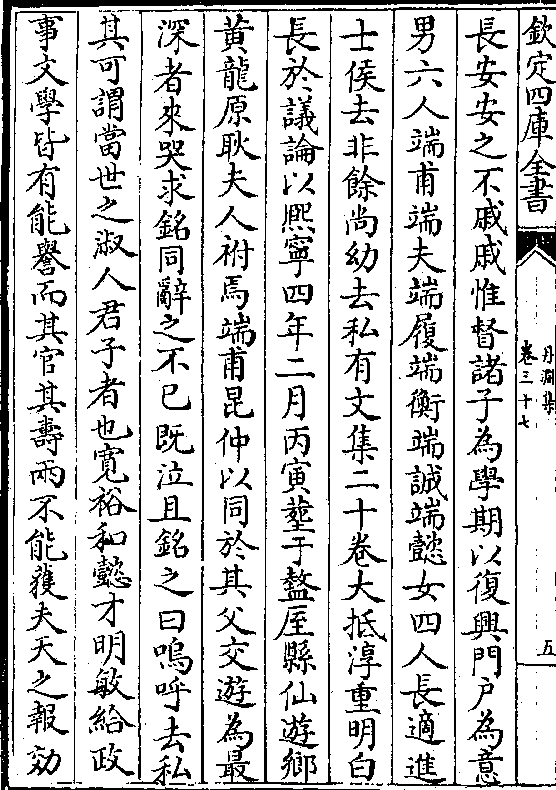 欽定四庫全書
丹淵集
卷三十七
五
長安安之不戚戚惟督諸子為學期以復興門户為意
男六人端甫端夫端履端衡端誠端懿女四人長適進
士侯去非餘尚幼去私有文集二十卷大抵淳重明白
長於議論以熙寧四年二月丙寅塟于盩厔縣仙遊鄉
黄龍原耿夫人祔焉端甫昆仲以同於其父交遊為最
深者來哭求銘同辭之不已既泣且銘之曰嗚呼去私
其可謂當世之淑人君子者也寛裕和懿才明敏給政
事文學皆有能譽而其官其壽兩不能獲夫天之報効